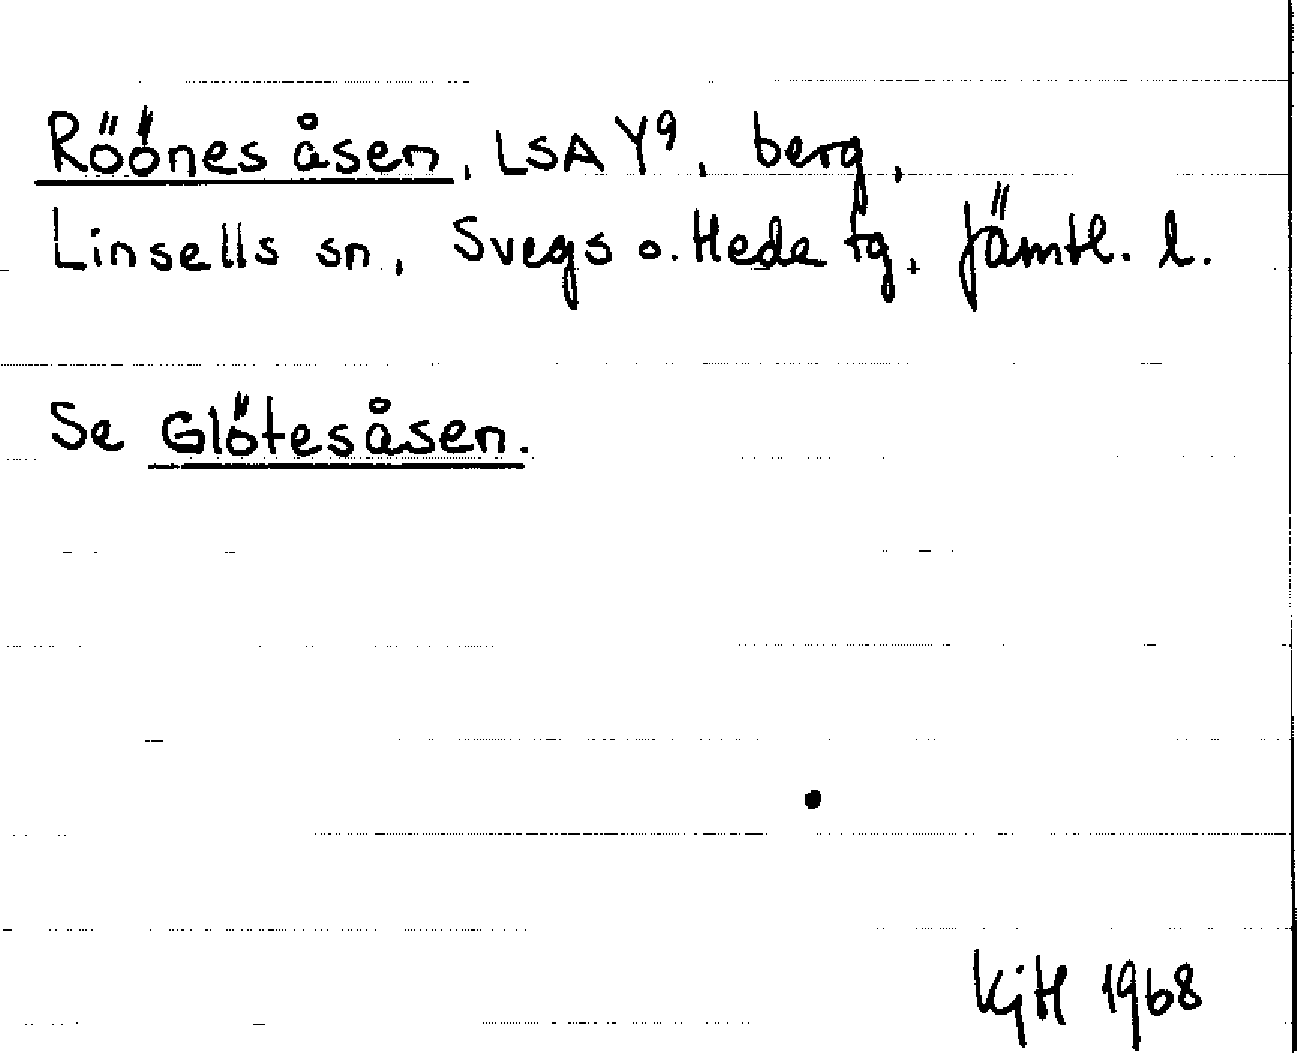 Röönes åsen, LSA Y9, berg,
Linsells sn, Svegs o. Hede tg, Jämtl. l.
Se Glötesåsen.
KjH 1968